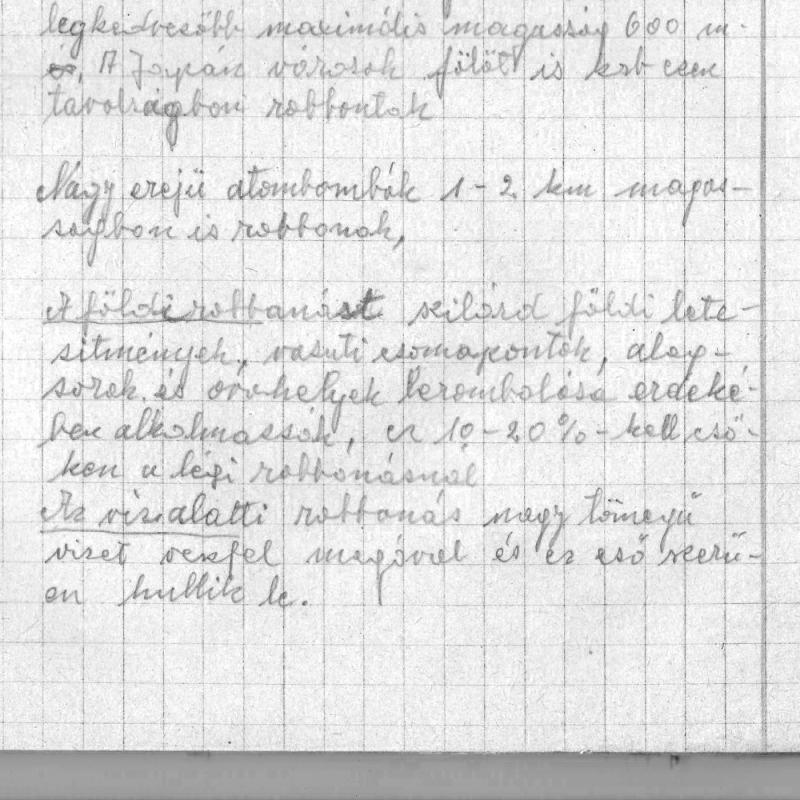 legkedvesőbb maximális magasság 600 m-
és, A Japán városok fölött is kb ezen
távolságban robbontak
Nagy erejű atombombák 1-2 km magas-
ságban is robbonak,
A földi robbanást szilárd földi léte-
sitmények, vasuti csomopontok, alag-
sorok és óvóhelyek lerombolása érdeké-
ben alkalmassák, ez 10-20%-kell cső-
ken a légi robbonásnál
Az viz alatti robbonás nagy tömegű
vizet veszfel magával és ez eső szerü-
en hullik le.